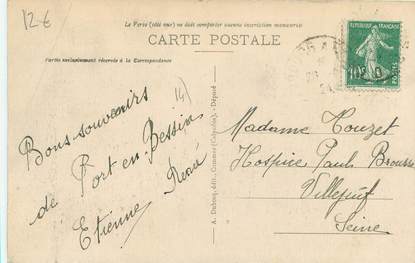 12€
Le Verso (côté vue) ne doit comporter aucune inscription manuscrite
CARTE POSTALE
Partie exclusivement réservée à la Correspondance
(14)
Bons souvenirs
de Port en Bessin
Etienne René
A. Dubosq, édit., Commes (Calvados). - Déposé
REPUBLIQUE FRANÇAISE
10c
POSTES
Madame Touzet
Hospice Paul Brousse
Villejuif
Seine